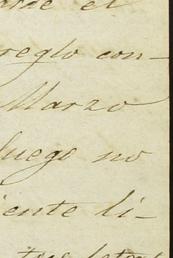 el
reglo con-
Marzo
luego no
ente li-